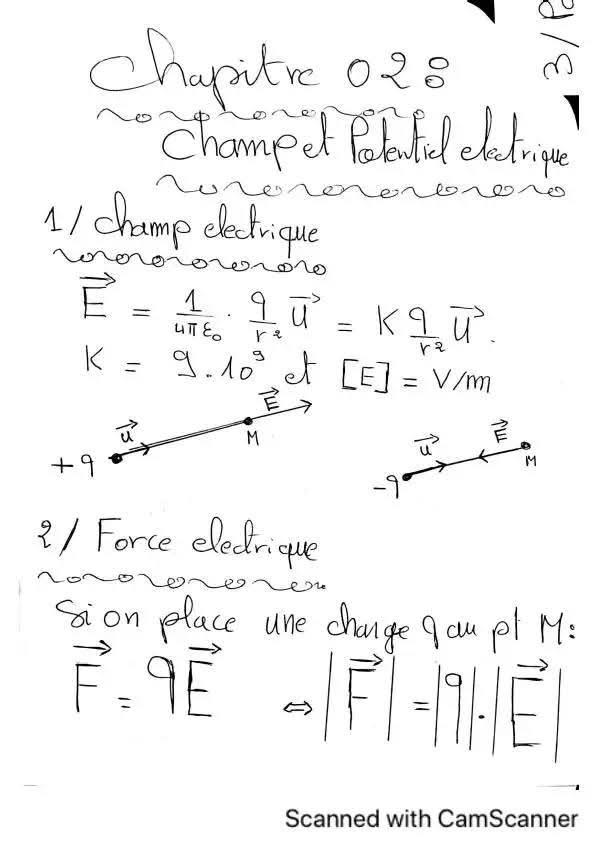 3/P
Chapitre 02:
Champ et Potentiel electrique
1/ champ electrique
E⃗ = 1/4πε₀ · q/r² u⃗ = K q/r² u⃗.
K = 9.10⁹ et [E] = V/m
+q u⃗ M E⃗
-q u⃗ E⃗ M
2/ Force electrique
Si on place une charge q au pt M:
F⃗ = qE⃗ ⇔ |F⃗| = |q|.|E⃗|
Scanned with CamScanner